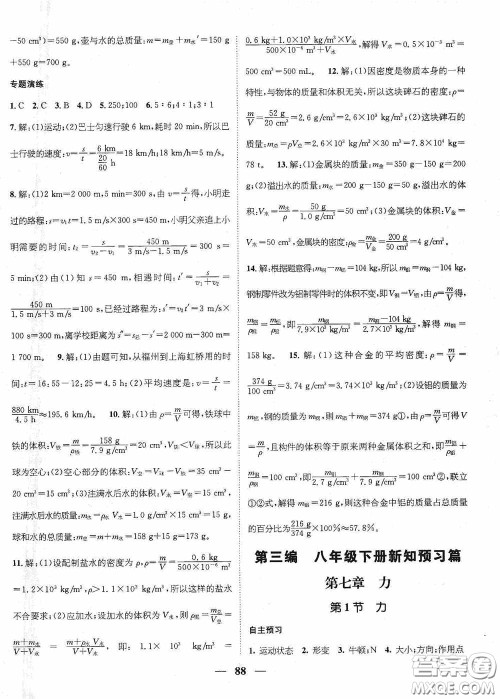 -50 cm³)=550 g,壶与水的总质量:m=m壶+m水'=150 g
+550 g=700 g.
专题演练
1. C 2. C 3. B 4. D 5. 250;100 6. 5:6;4:1;3:1
7. 解:(1)运动;(2)巴士匀速行驶 6 km,耗时 20 min,所以巴
士行驶的速度:v=s/t=6 km/(20/60 h)=18 km/h;18 km/h=5 m/s.
8. 解:(1)2 km=2 000 m,5 min=300 s,由v=s/t得,小明走
过的路程:s=v₁t=1.5 m/s×300 s=450 m,小明父亲追上小
明需要的时间:t₂=s/(v₂-v₁)=450 m/(3 m/s-1.5 m/s)=300 s=
5 min;(2)由(1)知 s=450 m,相遇时间:t'=s/(v₁+v₂)=
450 m/(1.5 m/s+3 m/s)=100 s,已经过路程为:s'=v₁t'=1.5 m/s×
100 s=150 m;离学校距离为:s''=s总-s-s'=
1 700 m. 9. 解:(1)由题可知,从福州到上海虹桥用的时
间:t=16:55-12:25=4.5 h;(2)平均速度是:v=s/t=
880 km/4.5 h≈195.6 km/h. 10. 解:(1)由ρ=m/V得,铁球中
铁的体积:V铁=m铁/ρ铁=158 g/7.9 g/cm³=20 cm³,V铁<V球,所以此
球为空心;(2)空心部分的体积:V空=V球-V铁=35 cm³-
20 cm³=15 cm³;(3)注满水后水的体积:V水=V空=15 cm³,
注满水后水的质量:m水=ρ水V水=1 g/cm³×15 cm³=15 g,
球和水的总质量:m总=m球+m水=158 g+15 g=173 g.
11. 解:(1)设配制盐水的密度为ρ,则ρ=m/V=0.6 kg/500 cm³
=1.2×10³ kg/m³,ρ>1.1×10³ kg/m³,所以这样的盐水
不合要求;(2)应加水;设加水的体积为V水,则加水后,有
(m+m水)/(V+V水)=(m+ρ水V水)/(V+V水),即:1.1×10³ kg/m³=
(0.6 kg+1.0×10³ kg/m³×V水)/(500×10⁻⁶ m³+V水),解得 V水=0.5×10⁻³ m³=
500 cm³=500 mL. 12. 解:(1)因密度是物质本身的一种
特性,与物体的质量和体积无关,所以这块碑石的密度:
ρ=m/V=52 g/20 cm³=2.6 g/cm³=2.6×10³ kg/m³;(2)这块碑石的
质量:由ρ=m/V得,m=ρV=2.6×10³ kg/m³×30 m³=7.8×10⁴ kg=
78 t. 13. 解:(1)金属块的质量:m金=350 g-150 g=
200 g;(2)溢出水的质量:m水=200 g-150 g=50 g,溢出水的体
积:V水=m水/ρ水=50 cm³;(3)金属块的体积:V金=
V水=50 cm³,金属块的密度:ρ金=m金/V金=200 g/50 cm³=4 g/cm³.
14. 解:根据题意得:m钢-m铝=104 kg,m铝=m钢-104 kg,
钢制零件改为铝制零件时的体积不变,即V钢=V铝,根据ρ=m/V可
得:m钢/ρ钢=m铝/ρ铝,即:m钢/7.9×10³ kg/m³=(m钢-104 kg)/2.7×10³ kg/m³,解得:m钢=
158 kg. 15. 解:(1)这种合金的平均密度:ρ=m/V=
374 g/100 cm³=3.74 g/cm³=3.74×10³ kg/m³;(2)设铝的质量为
m铝,钢的质量为m钢,则有 m铝+m钢=374 g①,由ρ=
m/V,且构件的体积等于原来两种金属体积之和,即m铝/ρ铝+
m钢/ρ钢=V,即:m铝/2.7 g/cm³+m钢/7.9 g/cm³=100 cm³②,联立
①②式,解得 m铝=216 g,则这种合金中铝的质量占总质量
的百分比为216 g/374 g×100%≈57.8%.
第三编 八年级下册新知预习篇
第七章 力
第 1 节 力
自主预习
1. 运动状态 2. 形变 3. 牛顿;N 4. 大小;方向;作用点
88